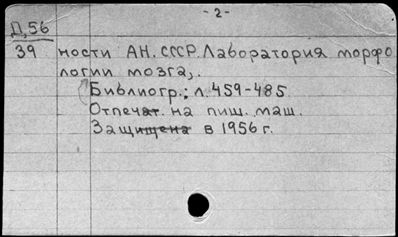 - 2 -
Д.56
39
ности АН. СССР. Лаборатория морфо
логии мозга,.
Библиогр.: л. 459-485.
Отпечат. на пиш. маш.
Защищена в 1956 г.